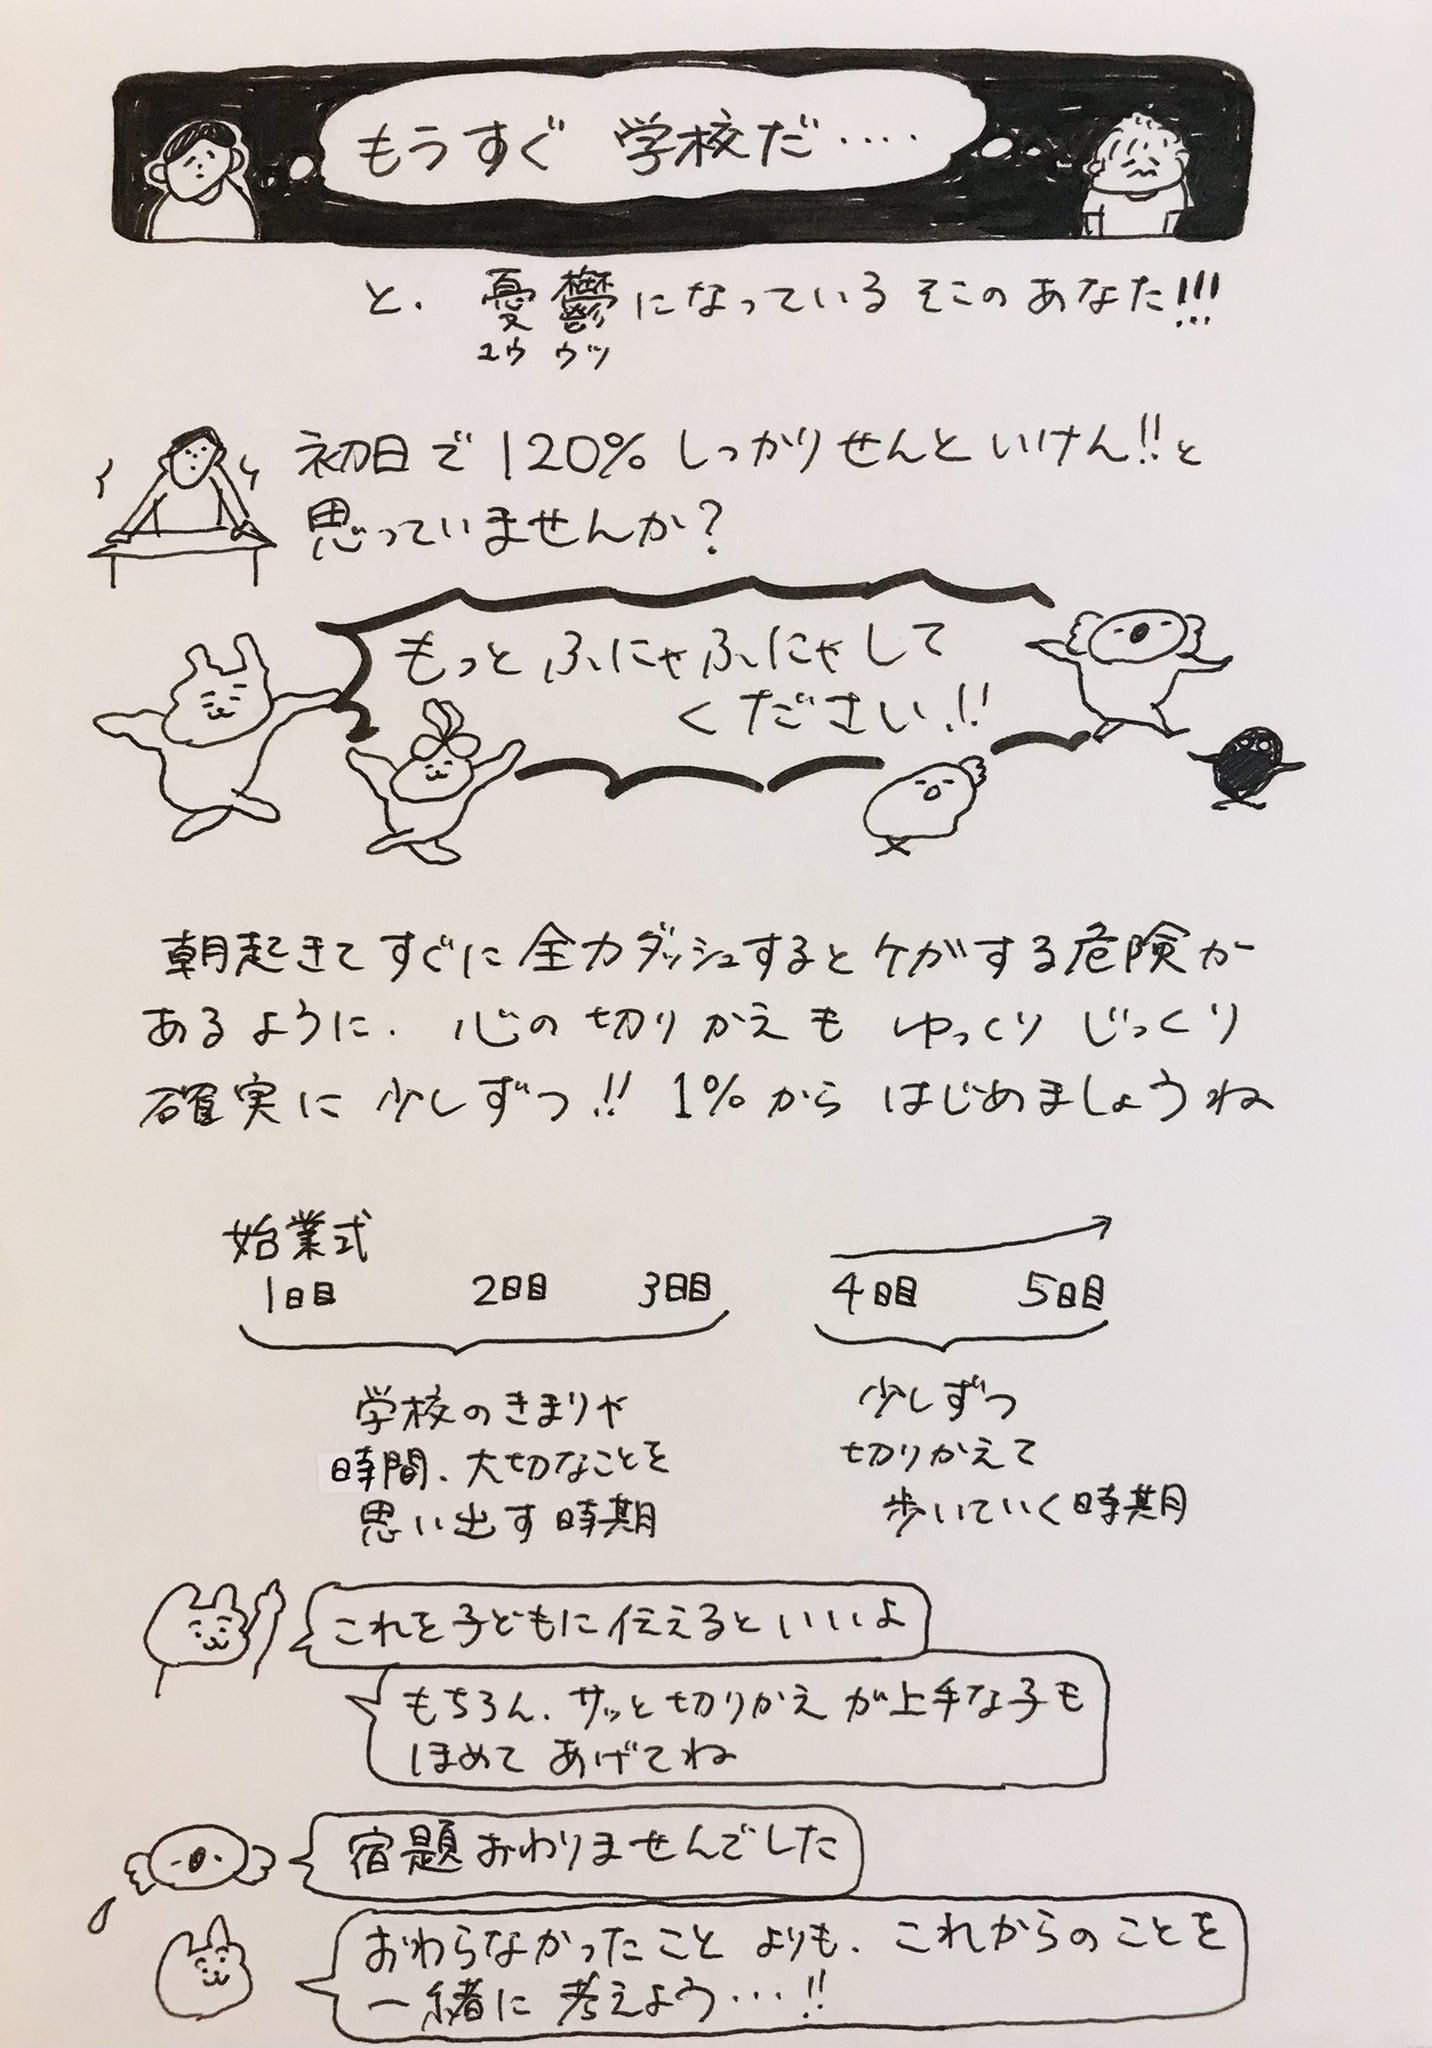 もうすぐ 学校だ‥‥
と、憂鬱になっているそこのあなた!!!
ユウ ウツ
初日で120%しっかりせんといけん!!と
思っていませんか?
もっとふにゃふにゃして
ください!!
朝起きてすぐに全力ダッシュするとケガする危険が
あるように、心の切りかえも ゆっくり じっくり
確実に 少しずつ!! 1%から はじめましょうね
始業式
1日目 2日目 3日目 4日目 5日目
学校のきまりや
時間、大切なことを
思い出す時期
少しずつ
切りかえて
歩いていく時期
これを子どもに伝えるといいよ
もちろん、サッと切りかえが上手な子も
ほめてあげてね
宿題おわりませんでした
おわらなかったことよりも、これからのことを
一緒に考えよう…!!